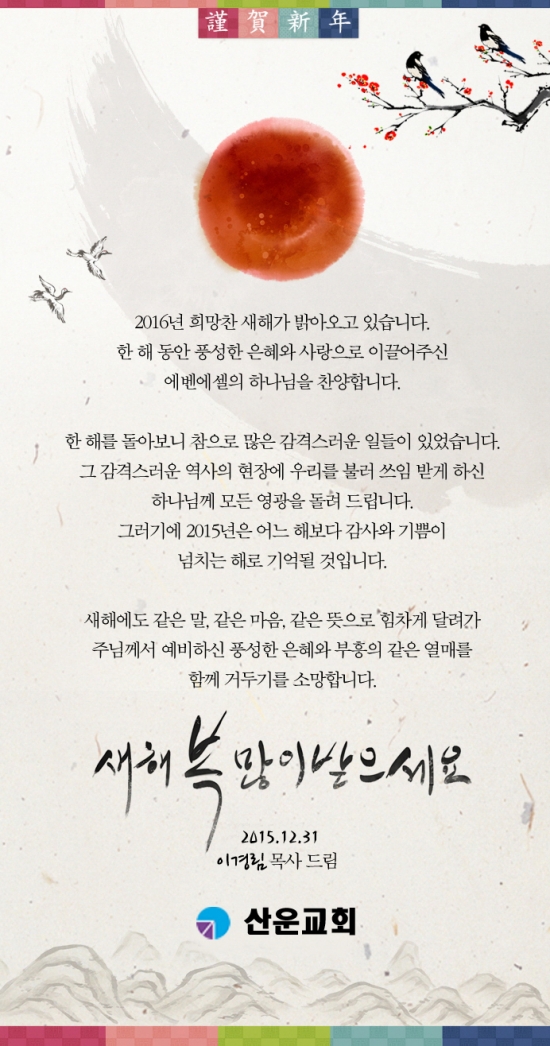 謹賀新年
2016년 희망찬 새해가 밝아오고 있습니다.
한 해 동안 풍성한 은혜와 사랑으로 이끌어주신
에벤에셀의 하나님을 찬양합니다.
한 해를 돌아보니 참으로 많은 감격스러운 일들이 있었습니다.
그 감격스러운 역사의 현장에 우리를 불러 쓰임 받게 하신
하나님께 모든 영광을 돌려 드립니다.
그러기에 2015년은 어느 해보다 감사와 기쁨이
넘치는 해로 기억될 것입니다.
새해에도 같은 말, 같은 마음, 같은 뜻으로 힘차게 달려가
주님께서 예비하신 풍성한 은혜와 부흥의 같은 열매를
함께 거두기를 소망합니다.
새해 복 많이 받으세요
2015.12.31
이경림 목사 드림
산운교회